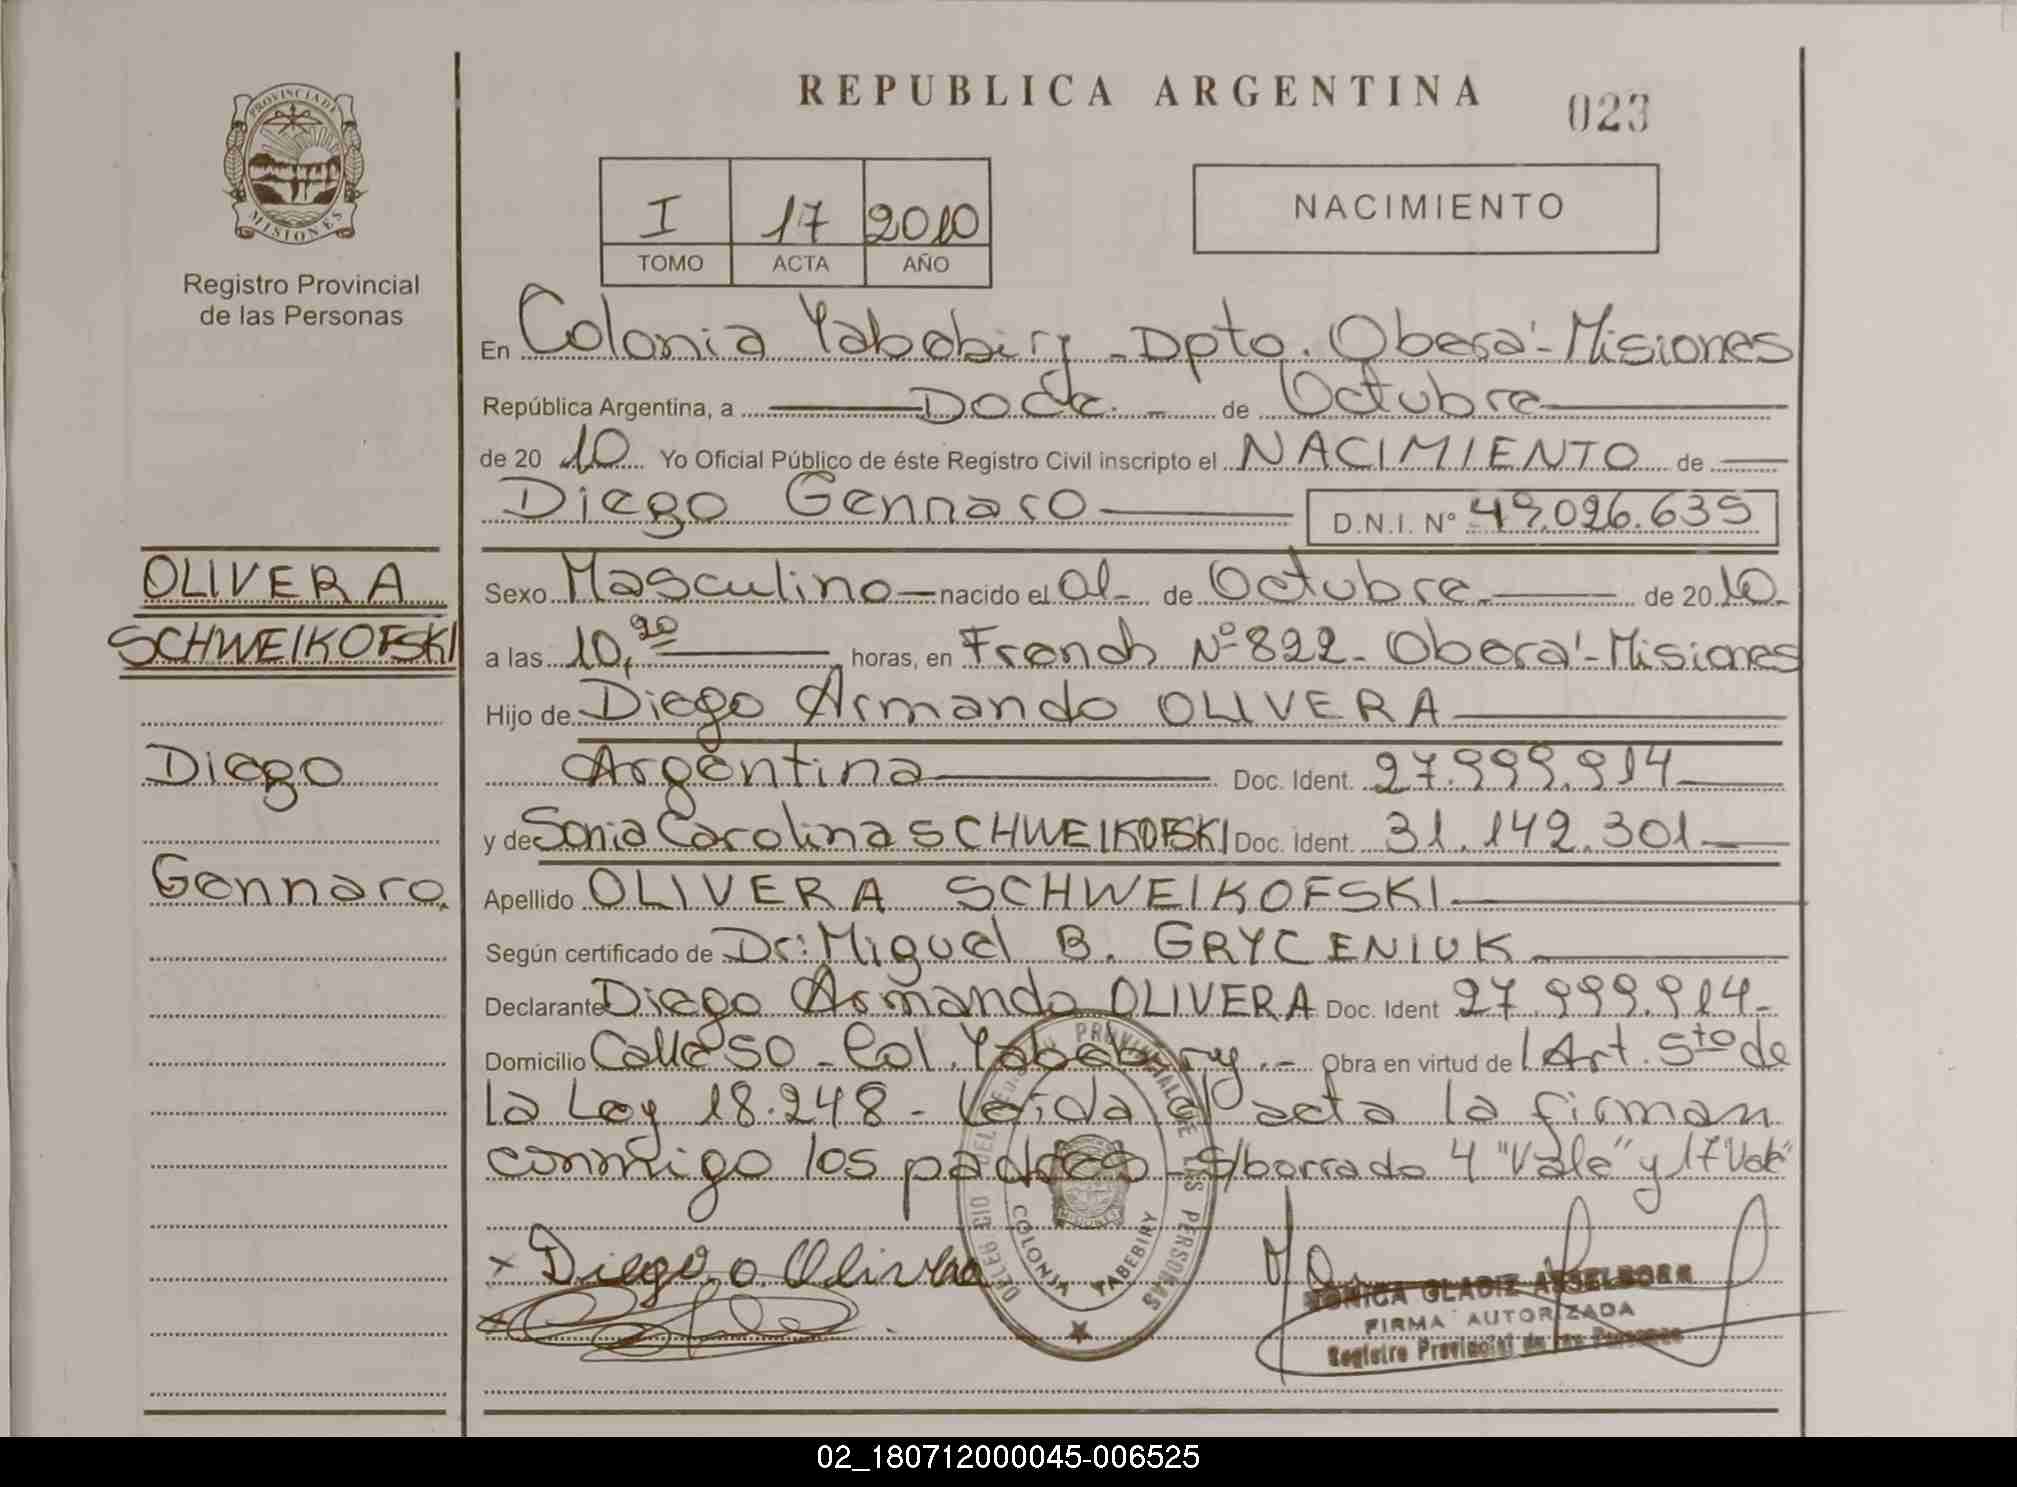 REPUBLICA ARGENTINA
023
PROVINCIA DE
MISIONES
Registro Provincial
de las Personas
I 17 2010
TOMO ACTA AÑO
NACIMIENTO
En Colonia Yabebiry - Dpto. Oberá - Misiones
República Argentina, a Doce de Octubre
de 20 10 Yo Oficial Público de éste Registro Civil inscripto el NACIMIENTO de
Diego Gennaro D.N.I. Nº 49.026.635
OLIVERA
SCHWEIKOFSKI
Diego
Gennaro.
Sexo Masculino nacido el 01 de Octubre de 20 10
a las 10,20 horas, en French Nº 822 - Oberá - Misiones
Hijo de Diego Armando OLIVERA
Argentina Doc. Ident. 27.999.914
y de Sonia Carolina SCHWEIKOFSKI Doc. Ident. 31.142.301
Apellido OLIVERA SCHWEIKOFSKI
Según certificado de Dr: Miguel B. GRYCENIUK
Declarante Diego Armando OLIVERA Doc. Ident 27.999.914-
Domicilio Calle SO - Col. Yabebiry.- Obra en virtud de l Art. 5to de
La Ley 18.248 - Leída el acta la firman
conmigo los padres - S/borrado 4 "Vale" y 17 "Vale"
x Diego a Olivera
DELEGACIO DEL REGISTRO PROVINCIAL DE LAS PERSONAS
COLONIA YABEBIRY
MONICA GLADIZ
FIRMA AUTORIZADA
Registro Provincial de las Personas
02_180712000045-006525